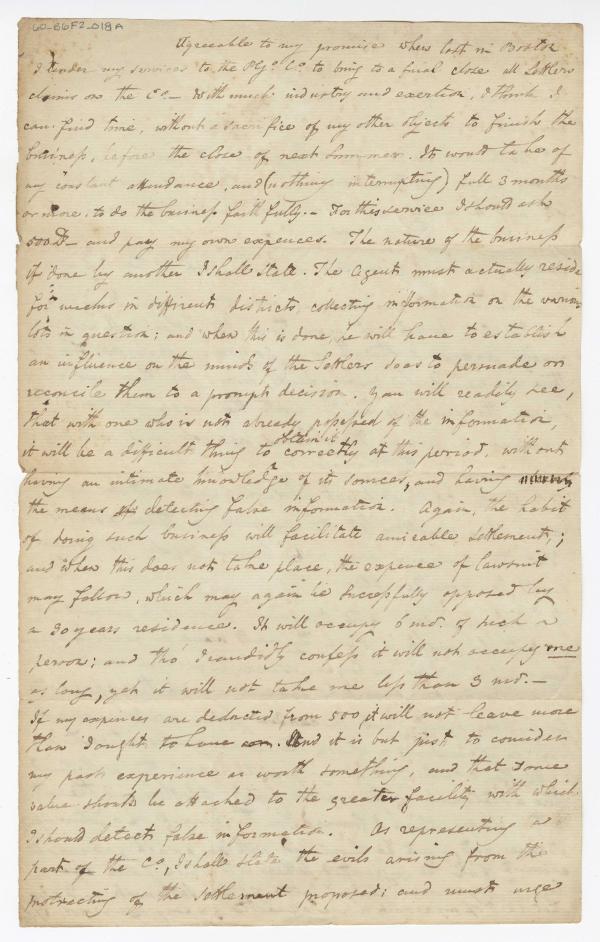 60-B6F2-018A
Agreeable to my promise when last in Boston
I tender my services to the Co. to bring to a final close all Settlers
claims on the Co.— With much industry and exertion, I think I
can find time, without a sacrifice of my other objects to finish the
business, before the close of next Summer. It would take of
my constant attendance, and (nothing interrupting) full 3 months
or more, to do the business faithfully.— For this service I should ask
500 D— and pay my own expences. The nature of the business
if done by another I shall state. The Agent must actually reside
for weeks in different districts collecting information on the various
lots in question; and when this is done, he will have to establish
an influence on the minds of the Settlers so as to persuade or
reconcile them to a prompt decision. You will readily see,
that with one who is not already possessed of the information,
it will be a difficult thing to obtain it correctly at this period, without
having an intimate knowledge of its sources, and having
the means of detecting false information. Again, the habit
of doing such business will facilitate amicable settlements;
and when this does not take place, the expence of lawsuit
may follow, which may again be successfully opposed by
a 30 years residence. It will occupy 6 mo. of such a
person; and tho' I candidly confess it will not occupy me
as long, yet it will not take me less than 3 mo.—
If my expences are deducted from 500, it will not leave more
than I ought to have. And it is but just to consider
my past experience as worth something, and that some
value should be attached to the greater facility with which
I should detect false information. As representing a
part of the Co, I shall state the evils arising from the
protracting of the settlement proposed; and must urge